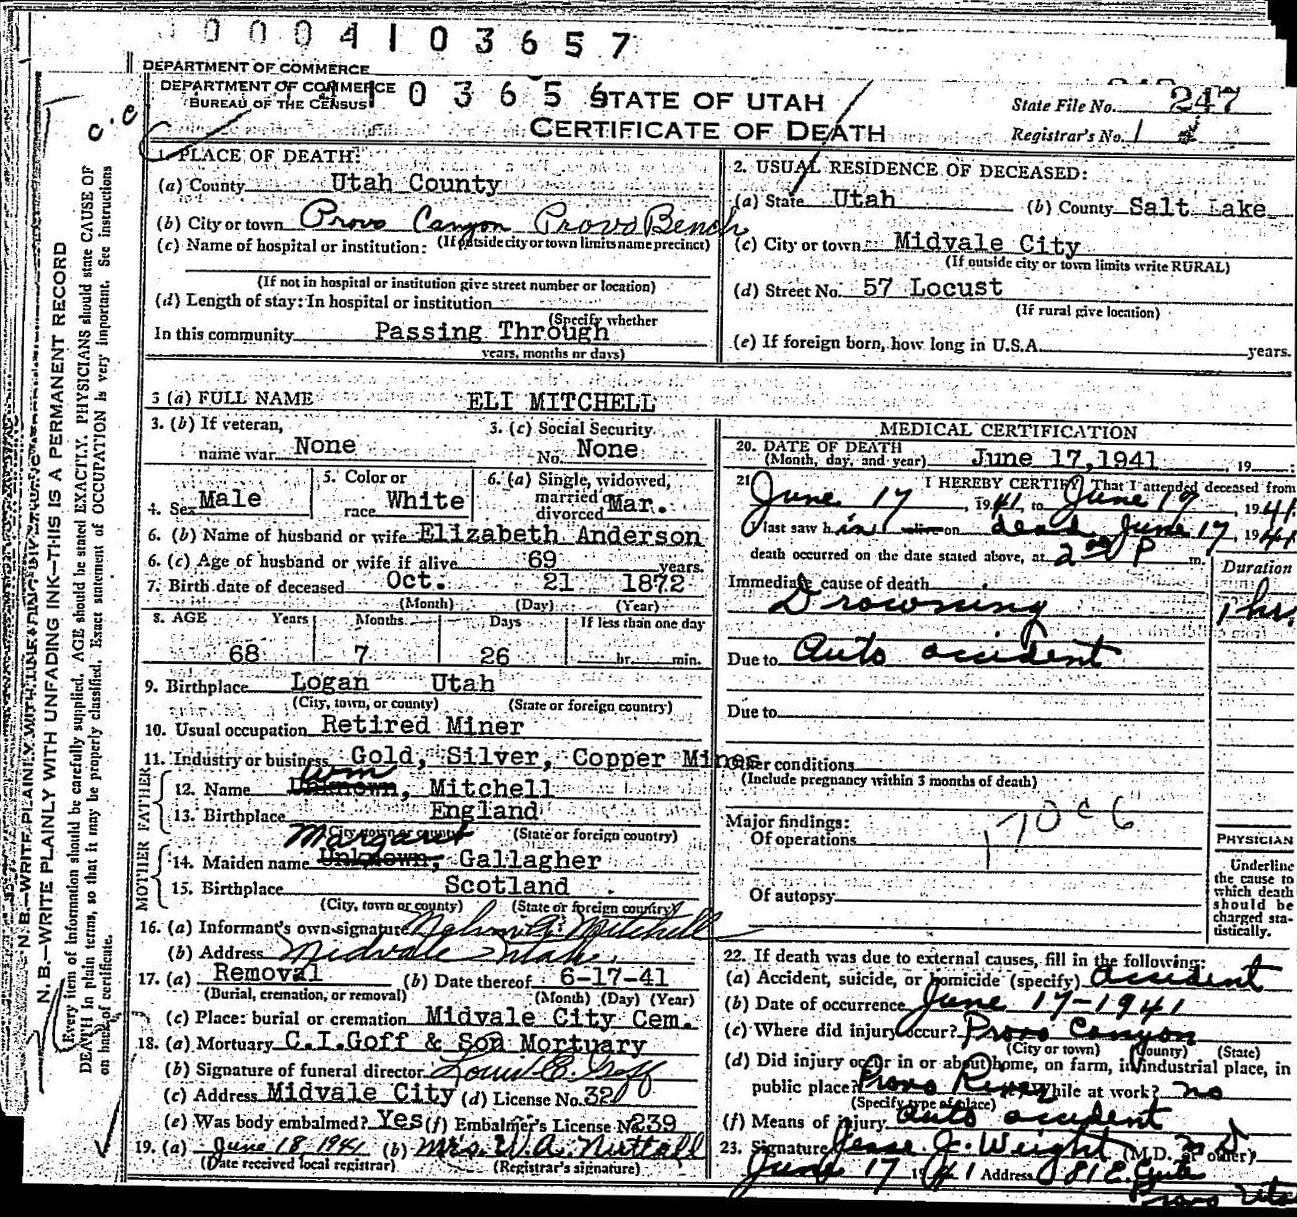 0004103657
DEPARTMENT OF COMMERCE
DEPARTMENT OF COMMERCE
BUREAU OF THE CENSUS
103656
STATE OF UTAH
CERTIFICATE OF DEATH
State File No. 247
Registrar's No. 1
c.c
N. B.—WRITE PLAINLY WITH UNFADING INK—THIS IS A PERMANENT RECORD
Every item of information should be carefully supplied. AGE should be stated EXACTLY. PHYSICIANS should state CAUSE OF
DEATH in plain terms, so that it may be properly classified. Exact statement of OCCUPATION is very important. See instructions
on back of certificate.
1. PLACE OF DEATH:
(a) County Utah County
(b) City or town Provo Canyon Provo Bench
(If outside city or town limits name precinct)
(c) Name of hospital or institution:
(If not in hospital or institution give street number or location)
(d) Length of stay: In hospital or institution
(Specify whether
In this community Passing Through
years, months or days)
2. USUAL RESIDENCE OF DECEASED:
(a) State Utah (b) County Salt Lake
(c) City or town Midvale City
(If outside city or town limits write RURAL)
(d) Street No. 57 Locust
(If rural give location)
(e) If foreign born, how long in U.S.A. years.
3 (a) FULL NAME ELI MITCHELL
3. (b) If veteran, name war None
3. (c) Social Security No. None
4. Sex Male
5. Color or race White
6. (a) Single, widowed, married or divorced Mar.
6. (b) Name of husband or wife Elizabeth Anderson
6. (c) Age of husband or wife if alive 69 years.
7. Birth date of deceased Oct. 21 1872
(Month) (Day) (Year)
8. AGE Years Months Days If less than one day
68 7 26 hr. min.
9. Birthplace Logan Utah
(City, town, or county) (State or foreign country)
10. Usual occupation Retired Miner
11. Industry or business Gold, Silver, Copper Mines
FATHER
Wm
12. Name Unknown, Mitchell
13. Birthplace England
(City, town or county) (State or foreign country)
MOTHER
Margaret
14. Maiden name Unknown, Gallagher
15. Birthplace Scotland
(City, town or county) (State or foreign country)
16. (a) Informant's own signature Mitchell
(b) Address Midvale Utah
17. (a) Removal (b) Date thereof 6-17-41
(Burial, cremation, or removal) (Month) (Day) (Year)
(c) Place: burial or cremation Midvale City Cem.
18. (a) Mortuary C.I.Goff & Son Mortuary
(b) Signature of funeral director Louis E. Goff
(c) Address Midvale City (d) License No. 320
(e) Was body embalmed? Yes (f) Embalmer's License No. 239
19. (a) June 18 1941 (b) Mrs. W. A. Nuttall
(Date received local registrar) (Registrar's signature)
MEDICAL CERTIFICATION
20. DATE OF DEATH
(Month, day, and year) June 17, 1941, 19
21 I HEREBY CERTIFY, That I attended deceased from
June 17, 1941, to June 19, 1941.
I last saw him alive on dead June 17, 1941.
death occurred on the date stated above, at 2 00 P m.
Duration
Immediate cause of death
Drowning 1 hr.
Due to Auto accident
Due to
Other conditions
(Include pregnancy within 3 months of death)
Major findings:
Of operations
170c6
Of autopsy
PHYSICIAN
Underline
the cause to
which death
should be
charged sta-
tistically.
22. If death was due to external causes, fill in the following:
(a) Accident, suicide, or homicide (specify) accident
(b) Date of occurrence June 17-1941
(c) Where did injury occur? Provo Canyon
(City or town) (County) (State)
(d) Did injury occur in or about home, on farm, in industrial place, in
public place? Provo River While at work? no
(Specify type of place)
(f) Means of injury auto accident
23. Signature Jesse J. Weight M D (M.D. or other)
June 17 1941 Address 81 E.
Provo Utah